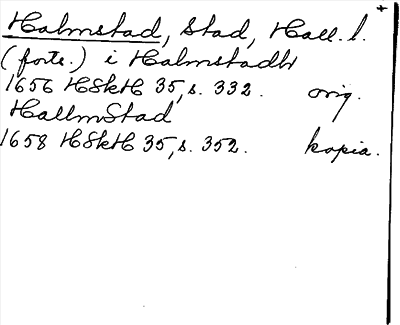 Halmstad, Stad, Hall. l. +
(forts.) i Halmstadh
1656 HSkH 35, s. 332. orig.
HallmStad
1658 HSkH 35, s. 352. kopia.